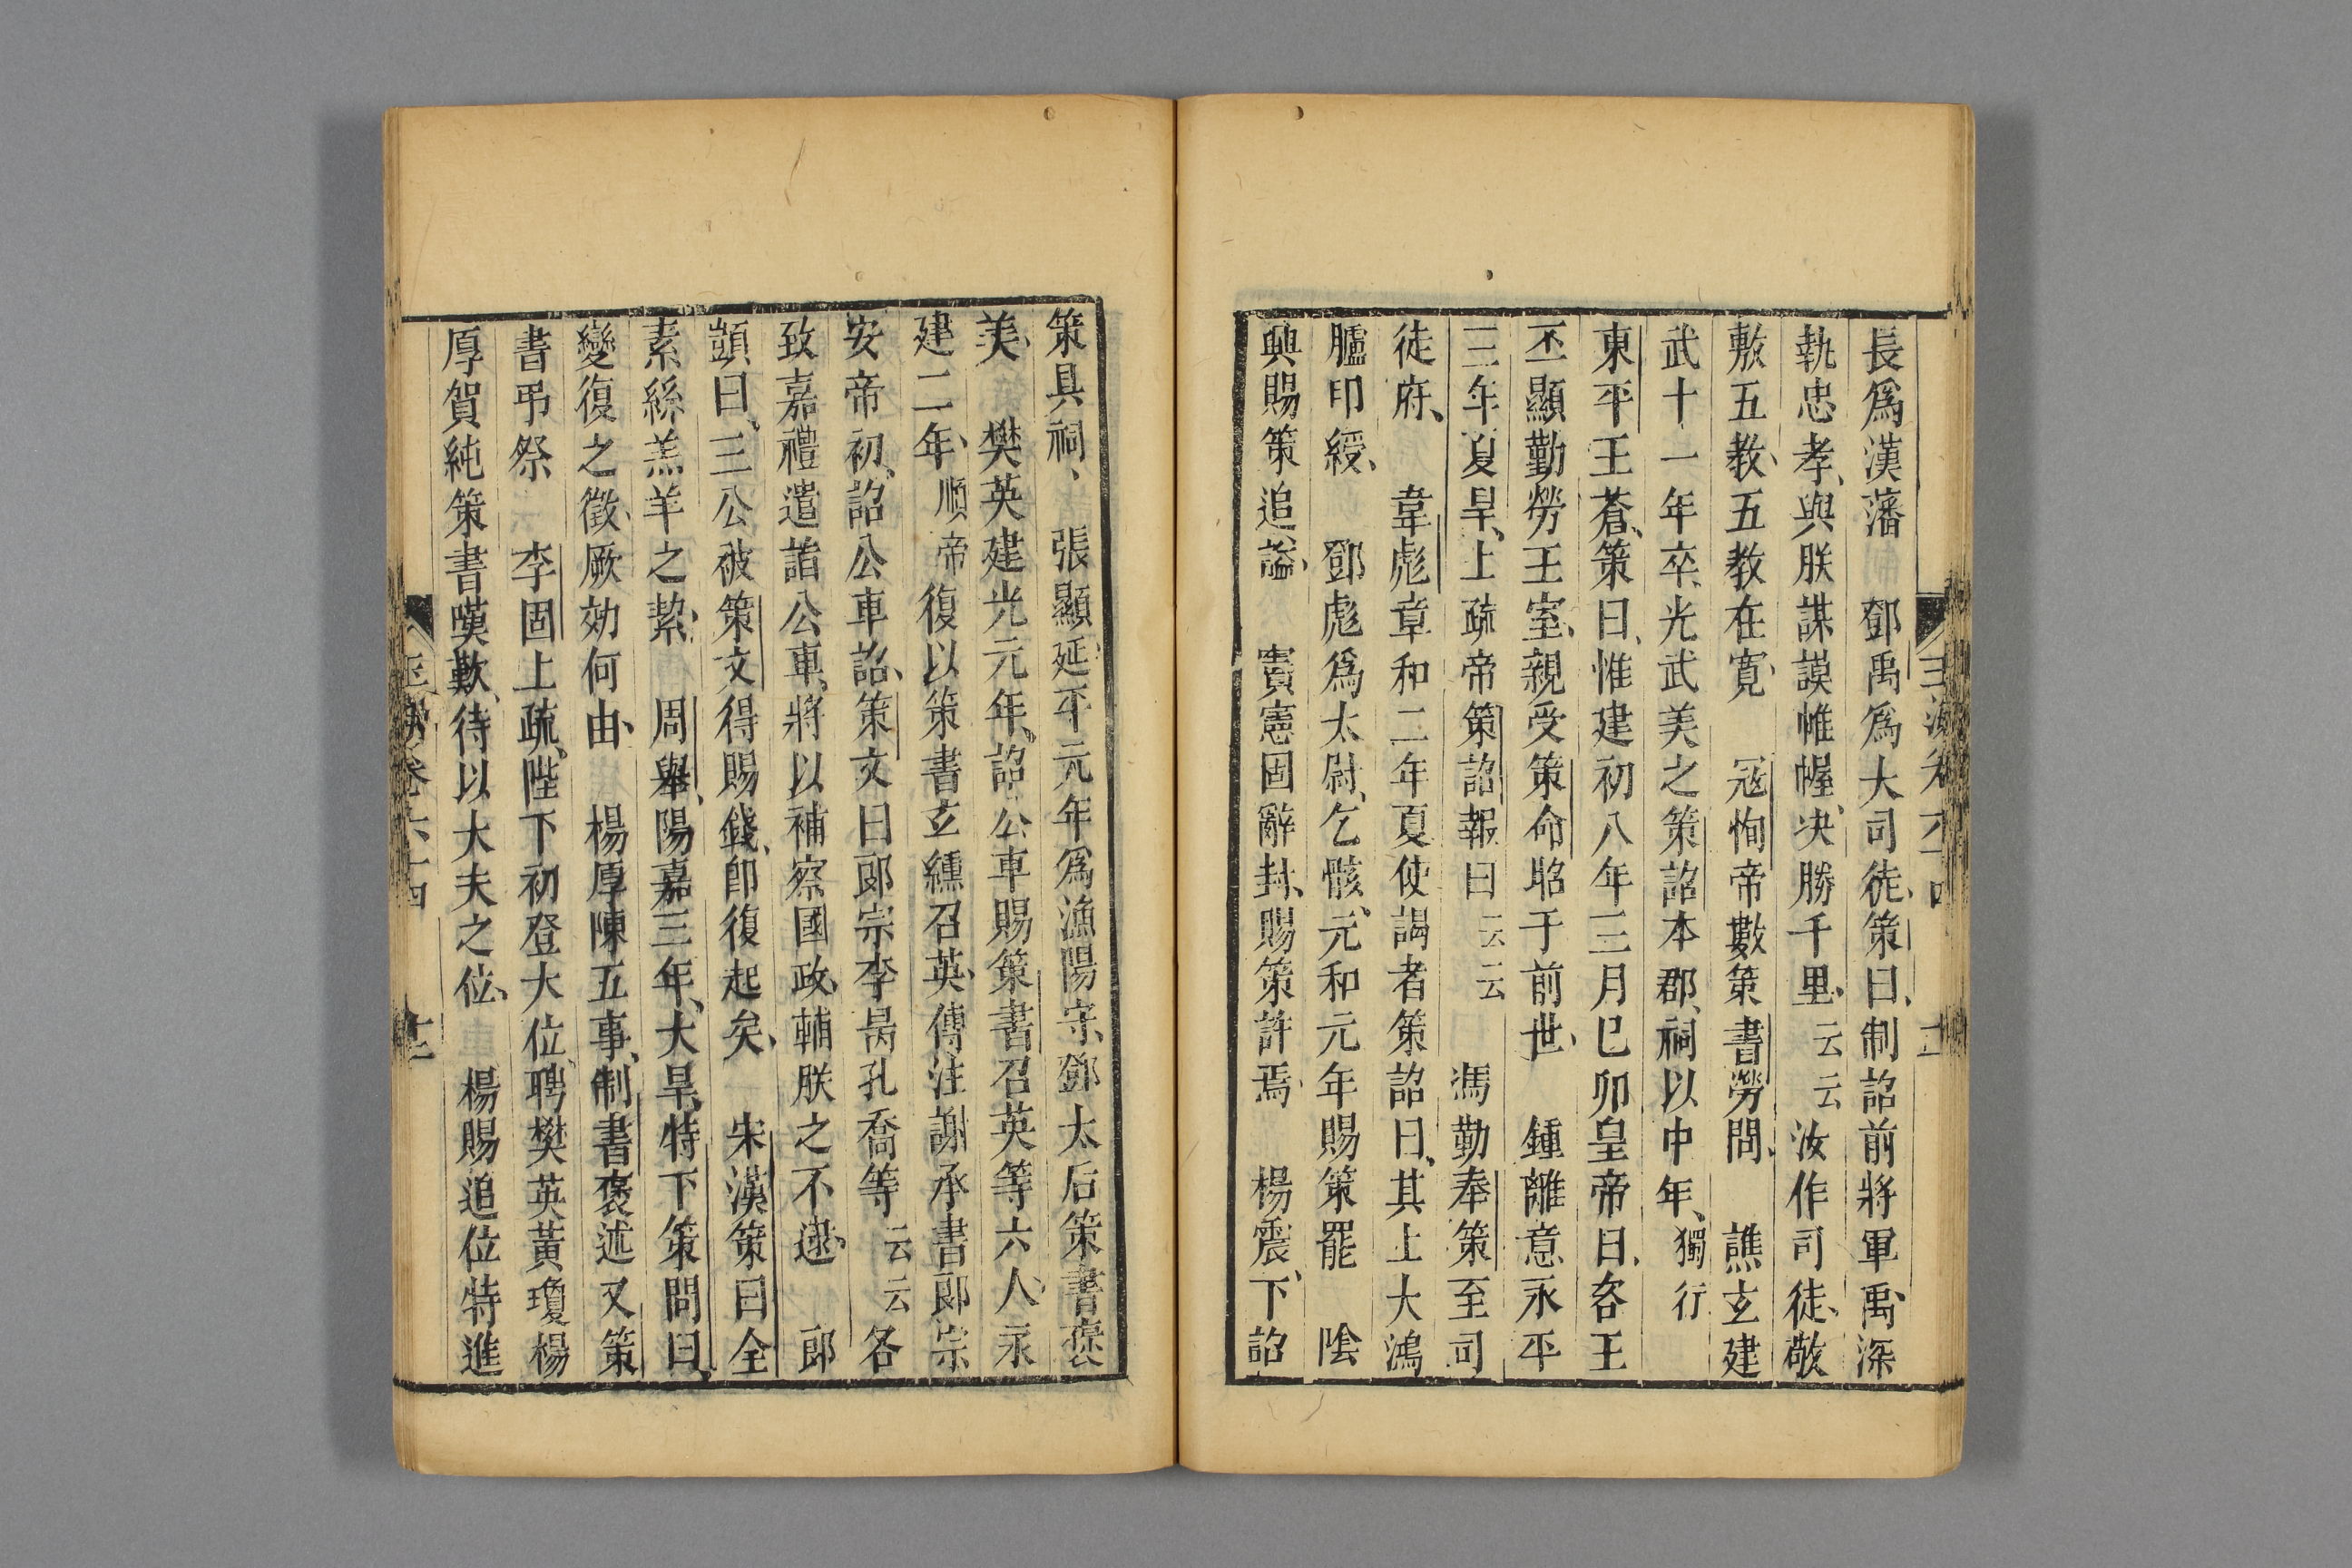 長爲漢藩　鄧禹爲大司徒策曰制詔前將軍禹深
執忠孝與朕謀謨帷幄决勝千里云云汝作司徒敬
敷五教五教在寛　冦恂帝數策書勞問　譙玄建
武十一年卒光武美之策詔本郡祠以中年獨行
東平王蒼策曰惟建初八年三月巳卯皇帝曰咨王
丕顯勤勞王室親受策命昭于前世　鍾離意永平
三年夏旱上疏帝策詔報曰云云　馮勤奉策至司
徒府　韋彪章和二年夏使謁者策詔曰其上大鴻
臚印綬　鄧彪爲太尉乞骸元和元年賜策罷　隂
興賜策追謚　竇憲固辭封賜策許焉　楊震下詔
策具祠　張顯延平元年爲漁陽守鄧太后策書褒
美　樊英建光元年詔公車賜策書召英等六人永
建二年順帝復以策書玄纁召英傳注謝承書郎宗
安帝初詔公車詔策文曰郎宗李昺孔喬等云云各
致嘉禮遣詣公車將以補察國政輔朕之不逮　郎
顗曰三公被策文得賜錢卽復起矣　宋漢策曰全
素絲羔羊之絜　周舉陽嘉三年大旱特下策問曰
變復之徵厥効何由　楊厚陳五事制書褒述又策
書弔祭　李固上疏陛下初登大位聘樊英黃瓊楊
厚賀純策書嘆歎待以大夫之位　楊賜追位特進
玉海卷六十四